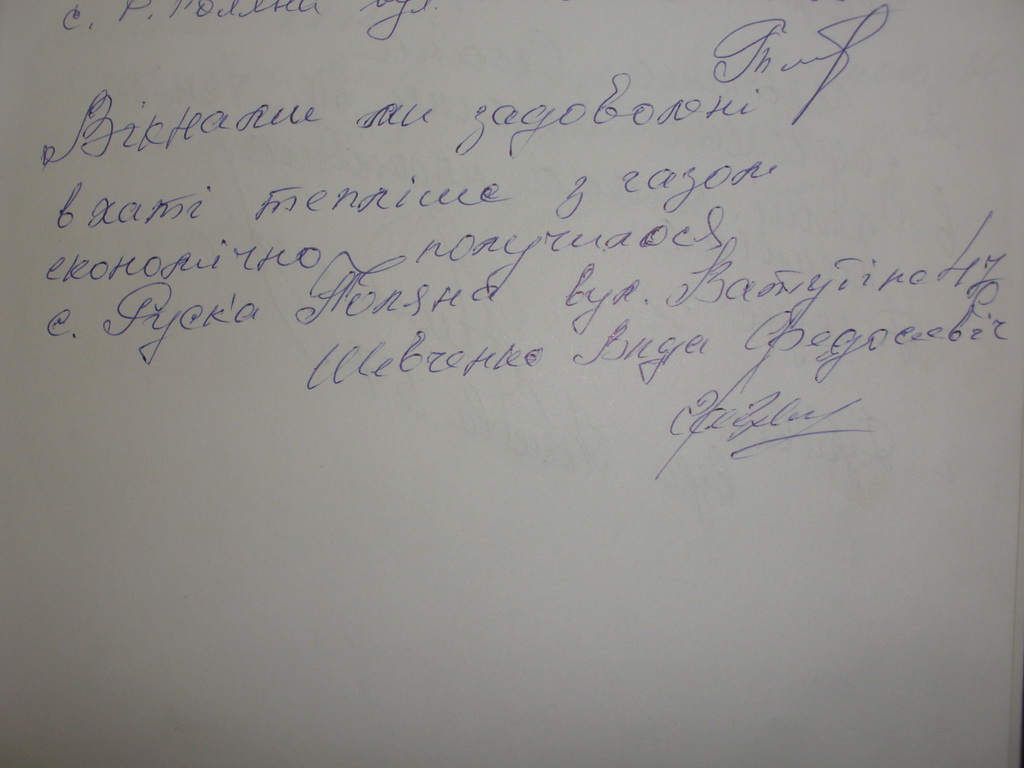 с. Р. Поляна вул.
Вікнами ми задоволоні
в хаті тепліше з газом
економічно получилося
с. Руска Поляна вул. Ватутіна 47
Шевченко Вида Федосієвіч